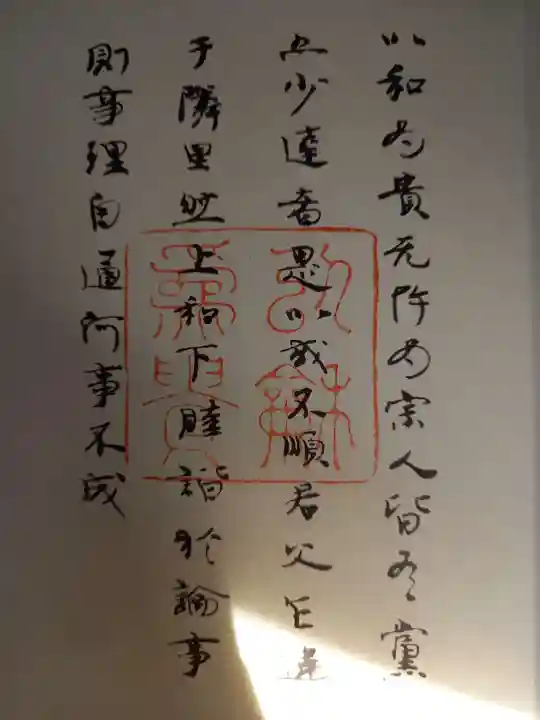 以和為貴无忤為宗人皆有黨
亦少達者是以或不順君父乍違
于隣里然上和下睦諧於論事
則事理自通何事不成
以和
為貴